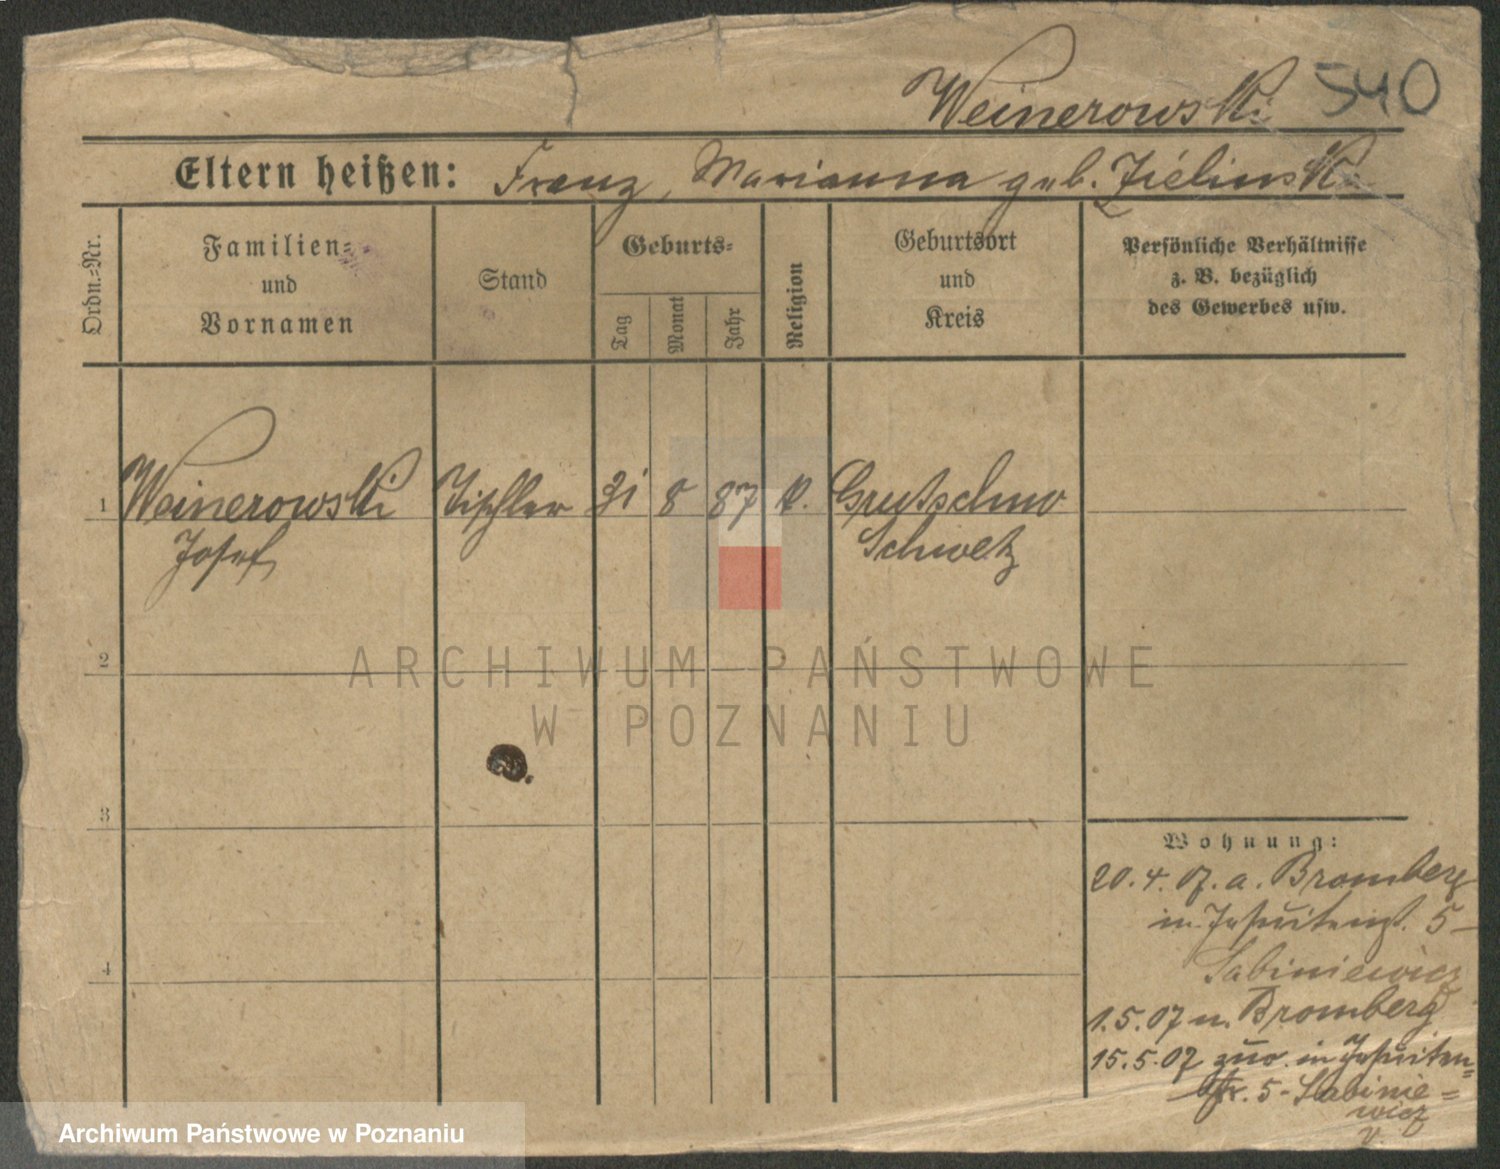 Weinerowski 540
Eltern heißen: Franz, Marianna geb. Zielinski
Ordn.-Nr.
Familien-
und
Vornamen
Stand
Geburts-
Tag
Monat
Jahr
Religion
Geburtsort
und
Kreis
Persönliche Verhältnisse
z. B. bezüglich
des Gewerbes usw.
1 Weinerowski Tischler 31 8 87 k. Grutschno
Josef Schwetz
2
ARCHIWUM PAŃSTWOWE
W POZNANIU
3
Wohnung:
20.4.07. a. Bromberg
in Jesuitenst. 5-
Sabiniewicz
4
1.5.07 n. Bromberg
15.5.07 zur. in Jesuiten=
str. 5- Sabinie=
wicz
Archiwum Państwowe w Poznaniu